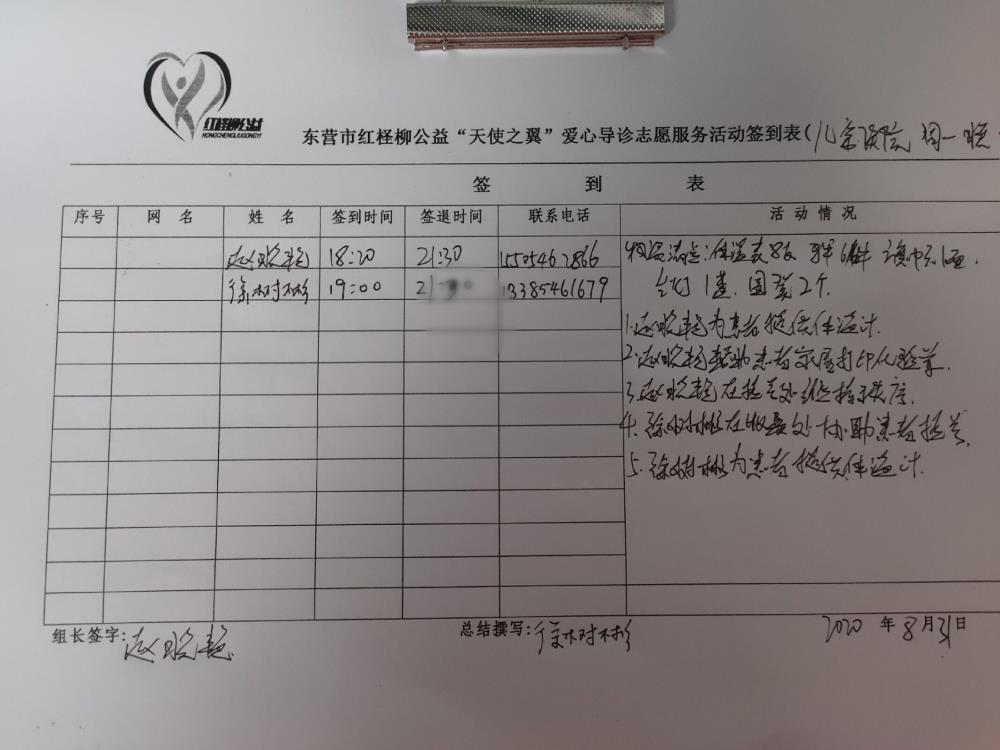 红柽柳公益
HONGCHENGLIUGONGYI
东营市红柽柳公益“天使之翼”爱心导诊志愿服务活动签到表(儿童医院 周一班
签 到 表
序号 网 名 姓 名 签到时间 签退时间 联系电话 活动情况
赵晓艳 18:20 21:30 15505462866 物资清点:体温表8支 6件
徐树彬 19:00 13385461679 台灯1盏. 2个.
1.赵晓艳为患者提供体温计.
2.赵晓艳帮助患者家属打印化验单.
3.赵晓艳在挂号处维持秩序.
4.徐树彬在收费处协助患者挂号.
5.徐树彬为患者提供体温计.
组长签字:赵晓艳 总结撰写:徐树彬 2020 年 8 月 31 日